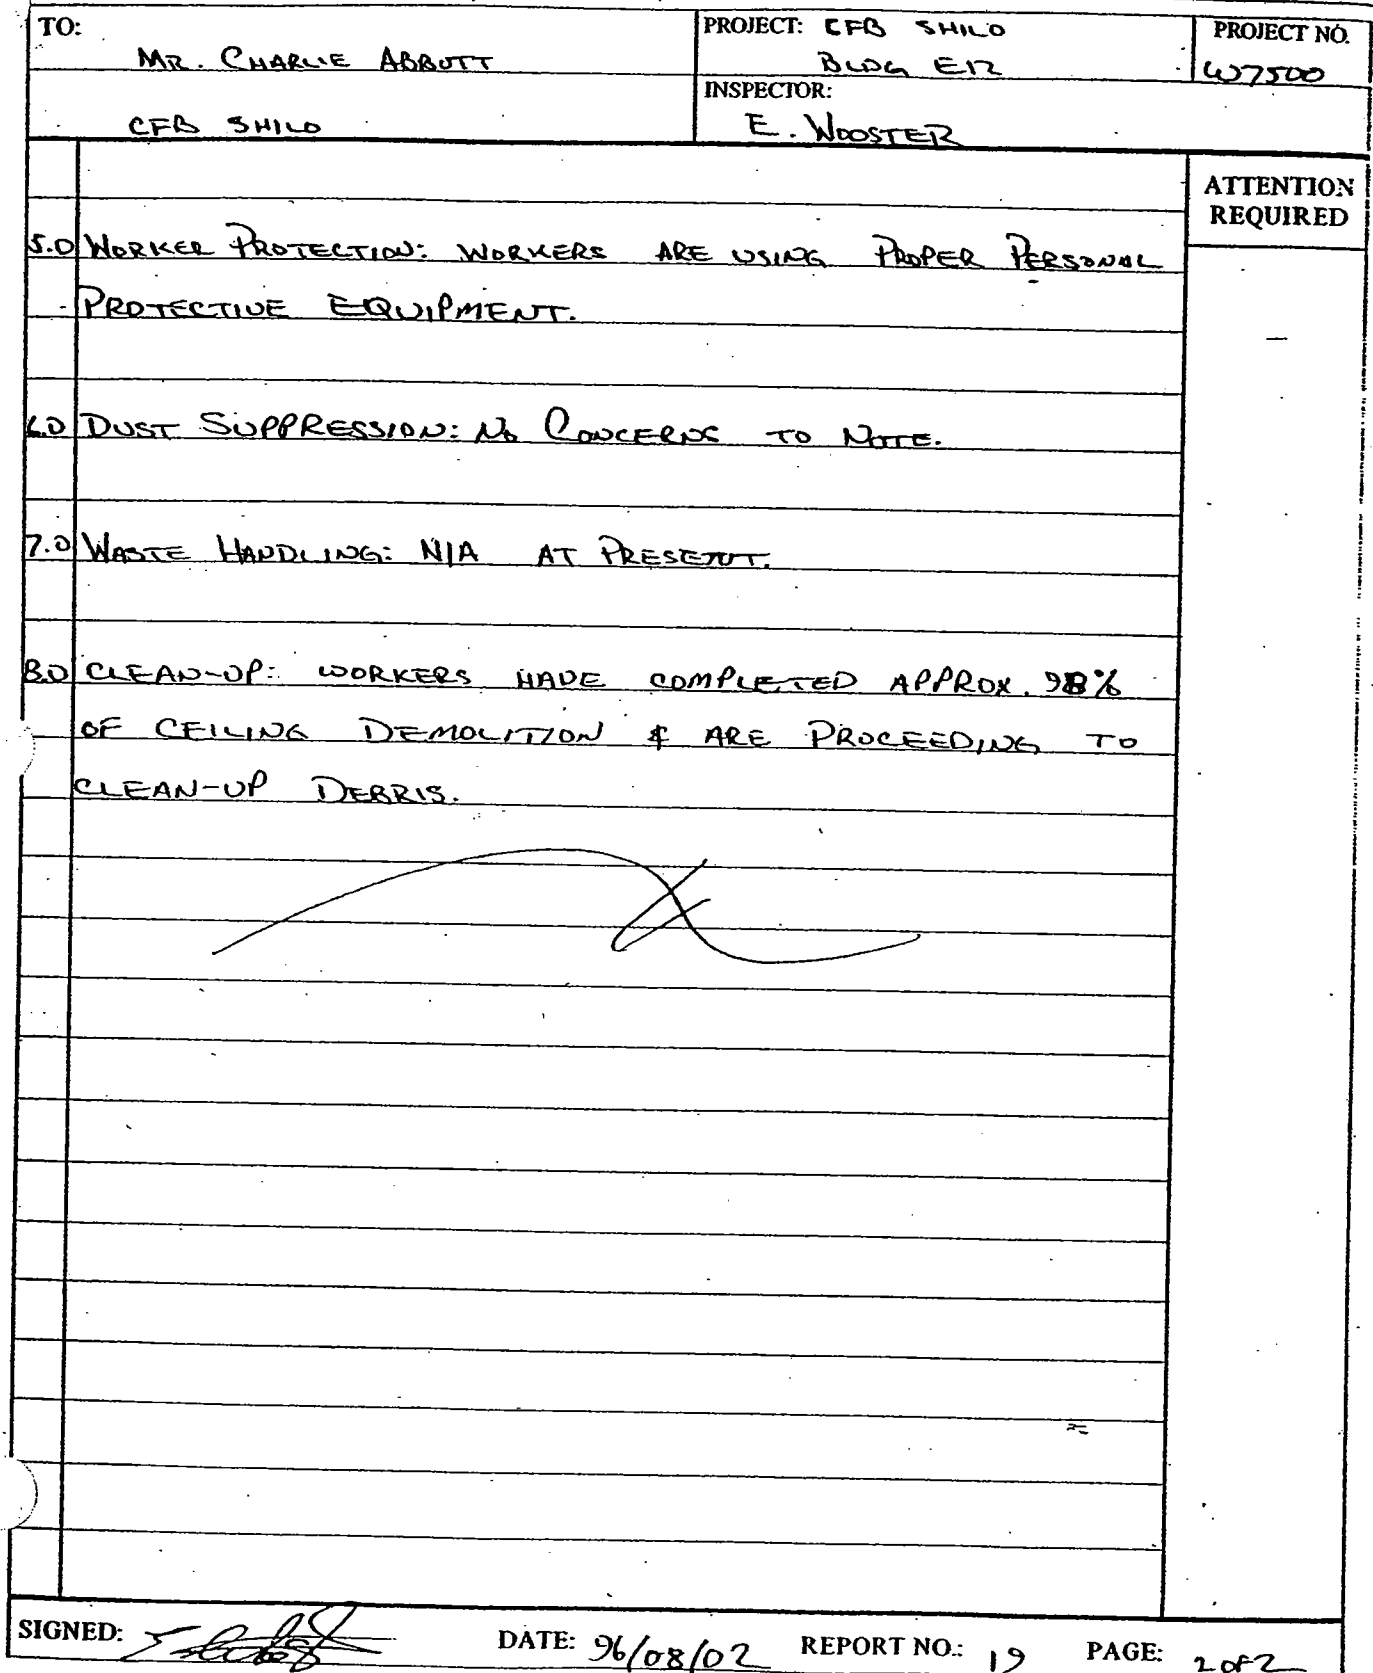 TO: PROJECT: CFB SHILO PROJECT NO.
MR. CHARLIE ABBOTT BLDG E12 W7500
INSPECTOR:
CFB SHILO E. WOOSTER
ATTENTION
REQUIRED
5.0 WORKER PROTECTION: WORKERS ARE USING PROPER PERSONAL
PROTECTIVE EQUIPMENT.
6.0 DUST SUPPRESSION: NO CONCERNS TO NOTE.
7.0 WASTE HANDLING: N/A AT PRESENT.
8.0 CLEAN-UP: WORKERS HAVE COMPLETED APPROX. 98%
OF CEILING DEMOLITION & ARE PROCEEDING TO
CLEAN-UP DEBRIS.
SIGNED: DATE: 96/08/02 REPORT NO.: 19 PAGE: 2 OF 2